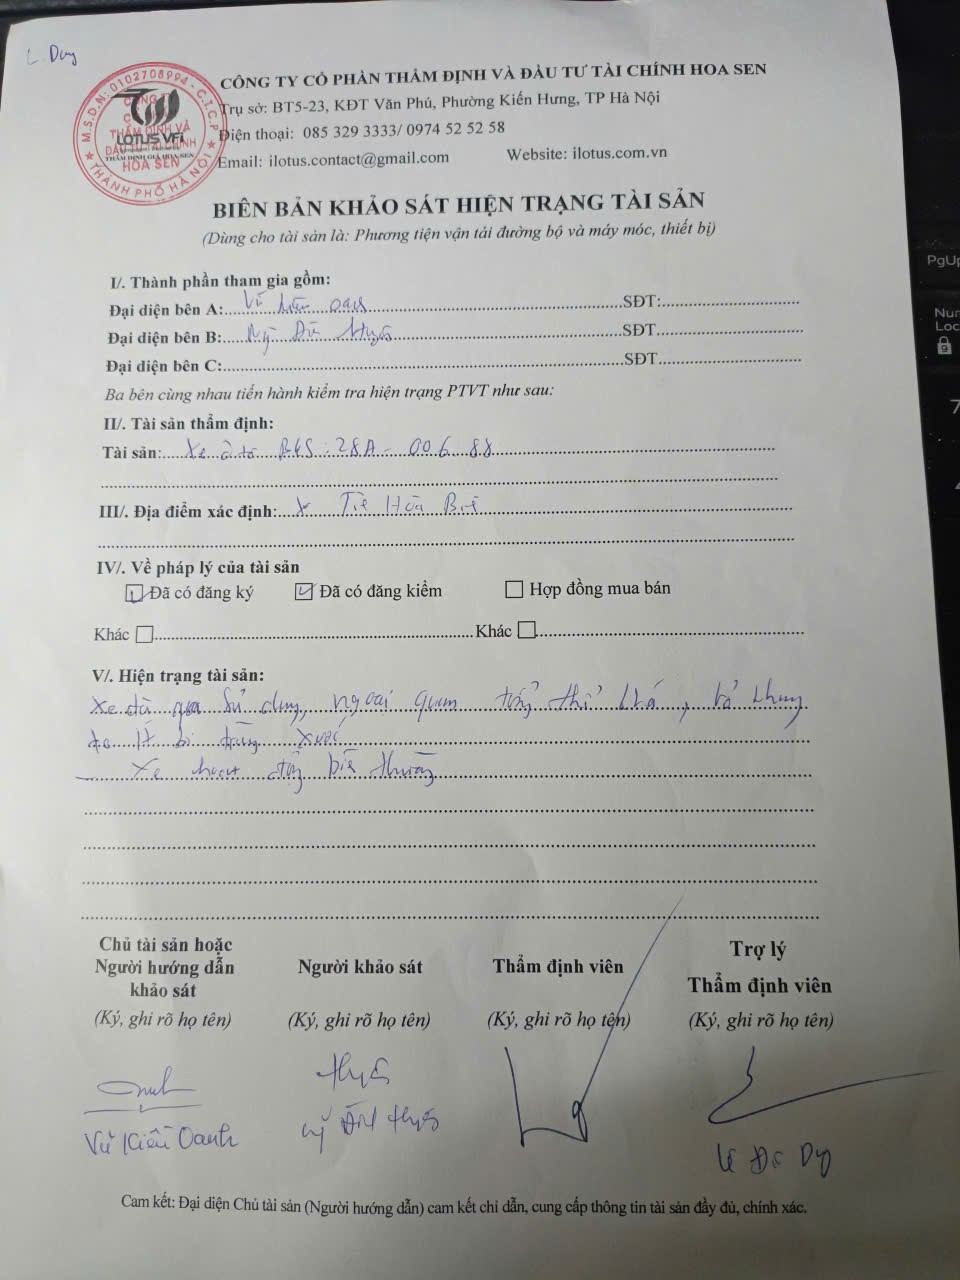 L. Duy
M.S.D.N: 0102708994 - C.T.C.P
CÔNG TY CỔ PHẦN THẨM ĐỊNH VÀ ĐẦU TƯ TÀI CHÍNH HOA SEN
LOTUS VFI
THẨM ĐỊNH GIÁ HOA SEN
THÀNH PHỐ HÀ NỘI
CÔNG TY CỔ PHẦN THẨM ĐỊNH VÀ ĐẦU TƯ TÀI CHÍNH HOA SEN
Trụ sở: BT5-23, KĐT Văn Phú, Phường Kiến Hưng, TP Hà Nội
Điện thoại: 085 329 3333/ 0974 52 52 58
Email: ilotus.contact@gmail.com Website: ilotus.com.vn
BIÊN BẢN KHẢO SÁT HIỆN TRẠNG TÀI SẢN
(Dùng cho tài sản là: Phương tiện vận tải đường bộ và máy móc, thiết bị)
I/. Thành phần tham gia gồm:
Đại diện bên A: Vũ Kiều Oanh SĐT:
Đại diện bên B: SĐT
Đại diện bên C: SĐT
Ba bên cùng nhau tiến hành kiểm tra hiện trạng PTVT như sau:
II/. Tài sản thẩm định:
Tài sản: Xe ô tô BKS: 28A - 006.88
III/. Địa điểm xác định:
IV/. Về pháp lý của tài sản
Đã có đăng ký Đã có đăng kiểm Hợp đồng mua bán
Khác Khác
V/. Hiện trạng tài sản:
Xe đã qua sử dụng, ngoại quan tổng thể khá,
xước
Xe hoạt động bình thường
Chủ tài sản hoặc
Người hướng dẫn
khảo sát
(Ký, ghi rõ họ tên)
Người khảo sát
(Ký, ghi rõ họ tên)
Thẩm định viên
(Ký, ghi rõ họ tên)
Trợ lý
Thẩm định viên
(Ký, ghi rõ họ tên)
Vũ Kiều Oanh
Cam kết: Đại diện Chủ tài sản (Người hướng dẫn) cam kết chỉ dẫn, cung cấp thông tin tài sản đầy đủ, chính xác.
PgUp
Num
Loc
9
7